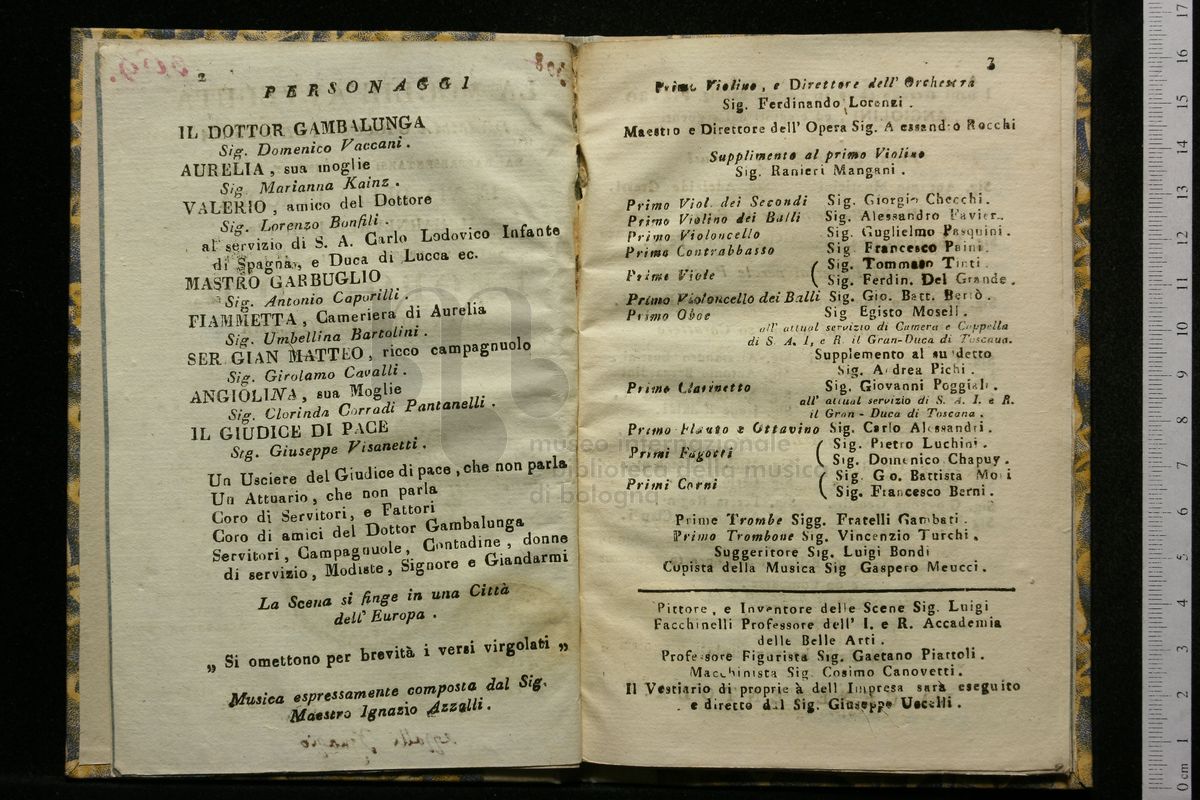 2
PERSONAGGI
IL DOTTOR GAMBALUNGA
Sig. Domenico Vaccani.
AURELIA, sua moglie
Sig. Marianna Kainz.
VALERIO, amico del Dottore
Sig. Lorenzo Bonfili.
al servizio di S. A. Carlo Lodovico Infante
di Spagna, e Duca di Lucca ec.
MASTRO GARBUGLIO
Sig. Antonio Caporilli.
FIAMMETTA, Cameriera di Aurelia
Sig. Umbellina Bartolini.
SER GIAN MATTEO, ricco campagnuolo
Sig. Girolamo Cavalli.
ANGIOLINA, sua Moglie
Sig. Clorinda Corradi Pantanelli.
IL GIUDICE DI PACE
Sig. Giuseppe Visanetti.
Un Usciere del Giudice di pace, che non parla
Un Attuario, che non parla
Coro di Servitori, e Fattori
Coro di amici del Dottor Gambalunga
Servitori, Campagnuole, Contadine, donne
di servizio, Modiste, Signore e Giandarmi
La Scena si finge in una Città
dell' Europa.
„ Si omettono per brevità i versi virgolati „
Musica espressamente composta dal Sig.
Maestro Ignazio Azzalli.
3
Primo Violino, e Direttore dell' Orchestra
Sig. Ferdinando Lorenzi.
Maestro e Direttore dell' Opera Sig. A essandro Rocchi
Supplimento al primo Violino
Sig. Ranieri Mangani.
Primo Viol. dei Secondi Sig. Giorgio Checchi.
Primo Violino dei Balli Sig. Alessandro Favier.
Primo Violoncello Sig. Guglielmo Pasquini.
Primo Contrabbasso Sig. Francesco Paini.
Prime Viole ( Sig. Tommaso Tinti.
Sig. Ferdin. Del Grande.
Primo Violoncello dei Balli Sig. Gio. Batt. Bertò.
Primo Oboe Sig Egisto Mosell.
all' attual servizio di Camera e Cappella
di S. A. I, e R. il Gran-Duca di Toscana.
Supplemento al su detto
Sig. Andrea Pichi.
Primo Clarinetto Sig. Giovanni Poggiali.
all' attual servizio di S. A. I. e R.
il Gran - Duca di Toscana.
Primo Flauto e Ottavino Sig. Carlo Alessandri.
Primi Fagotti ( Sig. Pietro Luchini.
Sig. Domenico Chapuy.
Primi Corni ( Sig. Gio. Battista
Sig. Francesco Berni.
Prime Trombe Sigg. Fratelli Gambati.
Primo Trombone Sig. Vincenzio Turchi.
Suggeritore Sig. Luigi Bondi
Copista della Musica Sig Gaspero Meucci.
Pittore, e Inventore delle Scene Sig. Luigi
Facchinelli Professore dell' I. e R. Accademia
delle Belle Arti.
Professore Figurista Sig. Gaetano Piattoli.
Macchinista Sig. Cosimo Canovetti.
Il Vestiario di proprie à dell Impresa sarà eseguito
e diretto dal Sig. Giuseppe Uccelli.
museo internazionale
biblioteca della musica
di bologna
0 cm 1 2 3 4 5 6 7 8 9 10 11 12 13 14 15 16 17